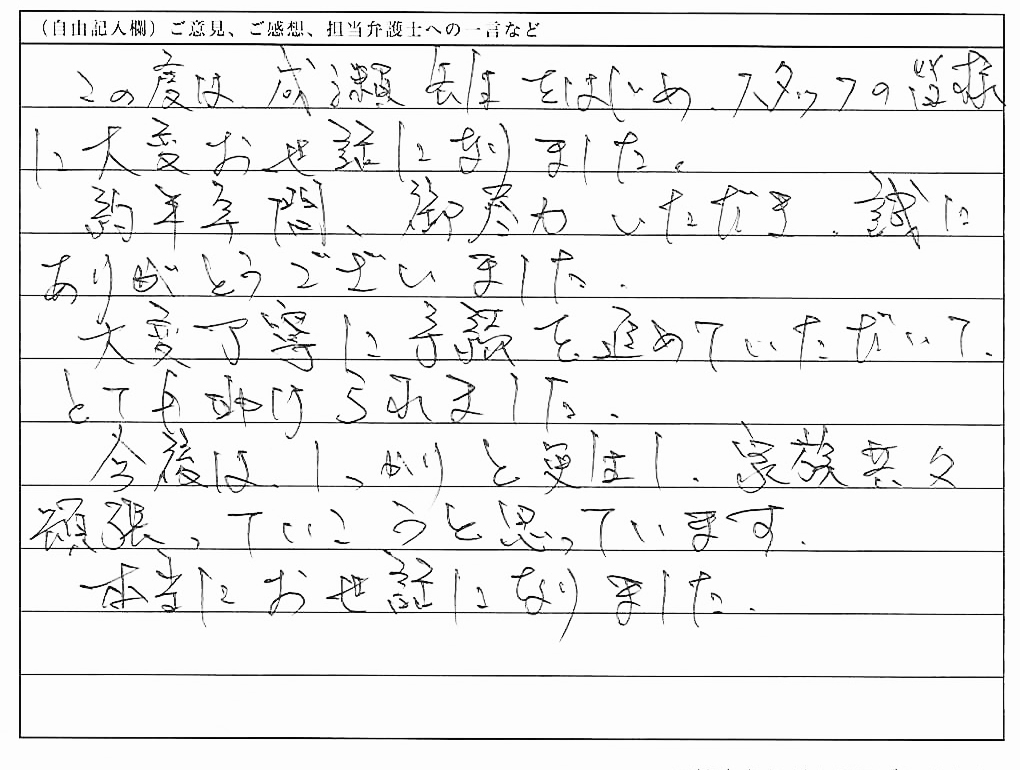 （自由記入欄）ご意見、ご感想、担当弁護士への一言など
この度は、成瀬 をはじめ、スタッフの皆様
に大変お世話になりました。
約半年間、御尽力いただき、誠に
ありがとうございました。
大変丁寧に手続を進めていただいて、
とても助けられました。
今後は、しっかりと更生し、家族共々
頑張っていこうと思っています。
本当にお世話になりました。